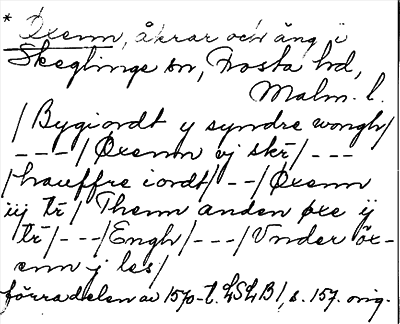 * Oxenn, åkrar och äng i
Skeglinge sn, Frosta hd,
Malm. l.
/Bygiordt y syndre wongh/
---/Oxenn vj skr/---
/hauffre iordt/--/Oxenn
iij tr/Thenn anden oxe ij
tr/---/Engh/---/Vnder ox-
enn j les/
förra delen av 1570-t. LSLB1, s. 157. orig.